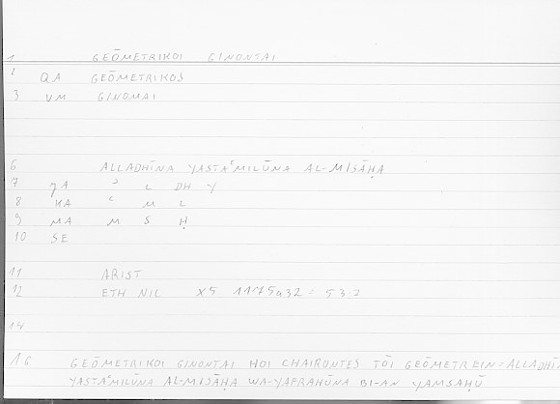 1 GEŌMETRIKOI GINONTAI
2 QA GEŌMETRIKOS
3 VM GINOMAI
6 ALLADHĪNA YASTAʿMILŪNA AL-MISĀḤA
7 ʾ L DH Y
8 KA ʿ M L
9 MA M S Ḥ
10 SE
11 ARIST
12 ETH NIC X5 1175a32 = 53.2
14
16 GEŌMETRIKOI GINONTAI HOI CHAIRONTES TŌI GEŌMETREIN = ALLADHĪN
YASTAʿMILŪNA AL-MISĀḤA WA-YAFRAHŪNA BI-AN YAMSAḤŪ